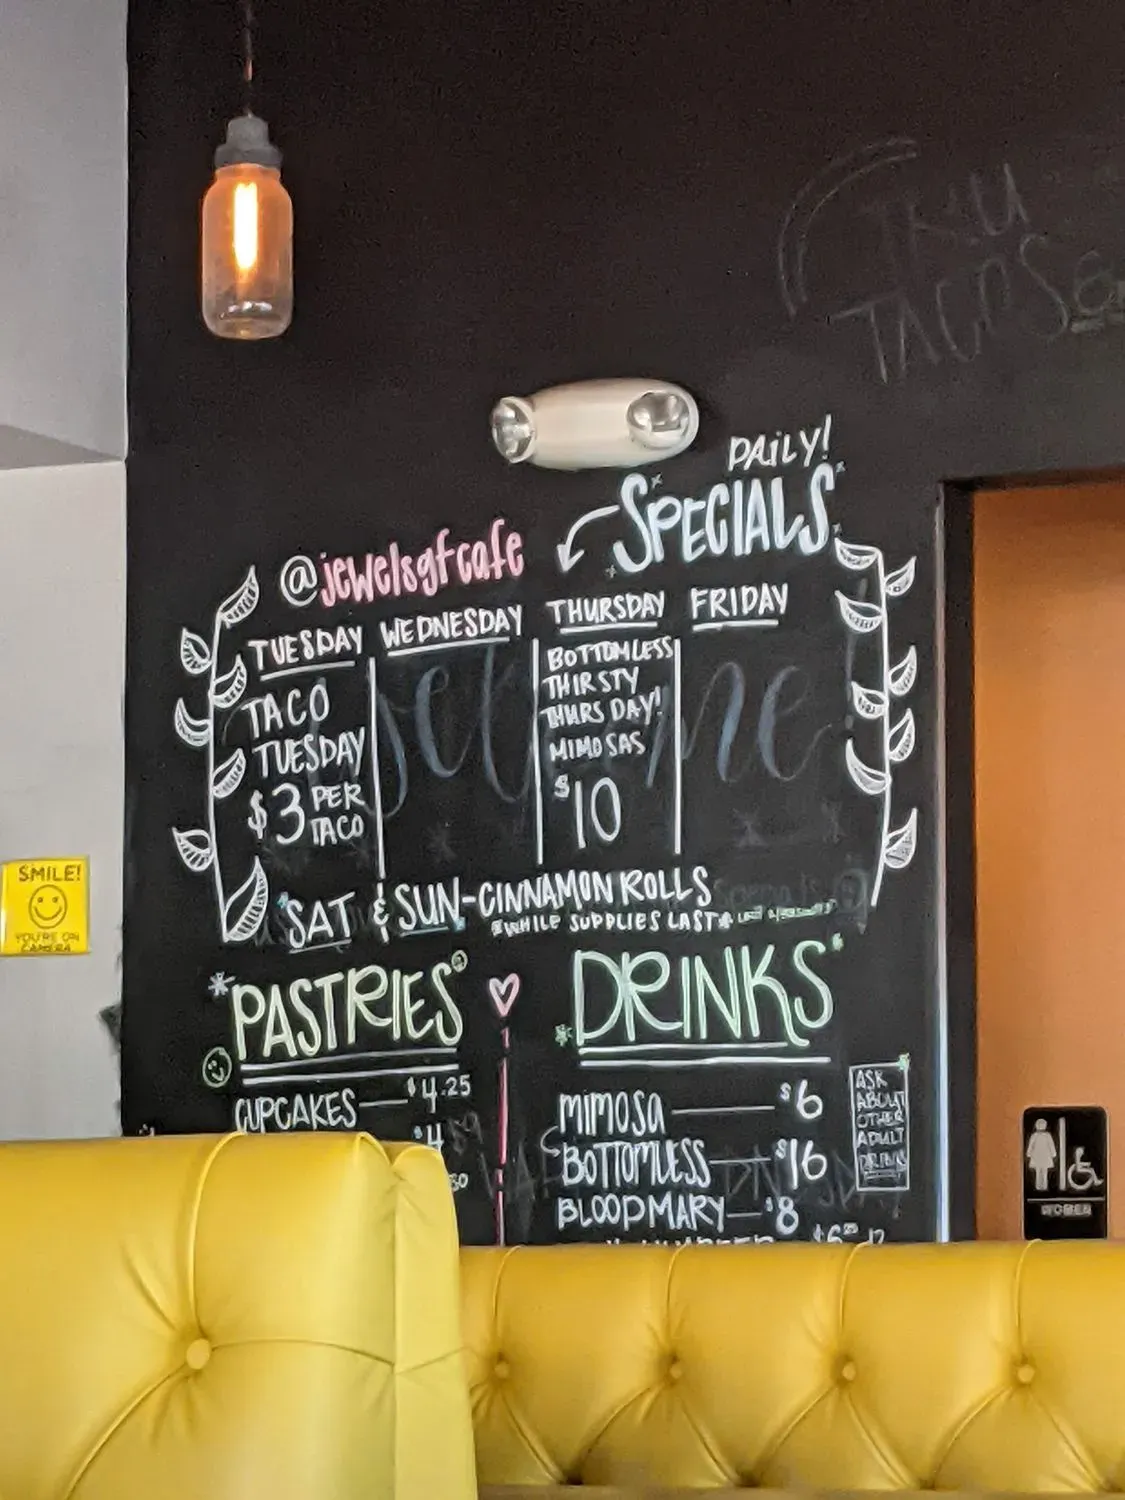 TACOS
DAILY!
SPECIALS
@jewelsgfcafe
TUESDAY
TACO
TUESDAY
$3 PER
TACO
WEDNESDAY
THURSDAY
BOTTOMLESS
THIRSTY
THURSDAY!
MIMOSAS
$10
FRIDAY
SAT & SUN-CINNAMON ROLLS
*WHILE SUPPLIES LAST*
PASTRIES
CUPCAKES — $4.25
$4
DRINKS
MIMOSA — $6
BOTTOMLESS — $16
BLOODMARY — $8
ASK
ABOUT
OTHER
ADULT
DRINKS
SMILE!
YOU'RE ON
CAMERA
WOMEN